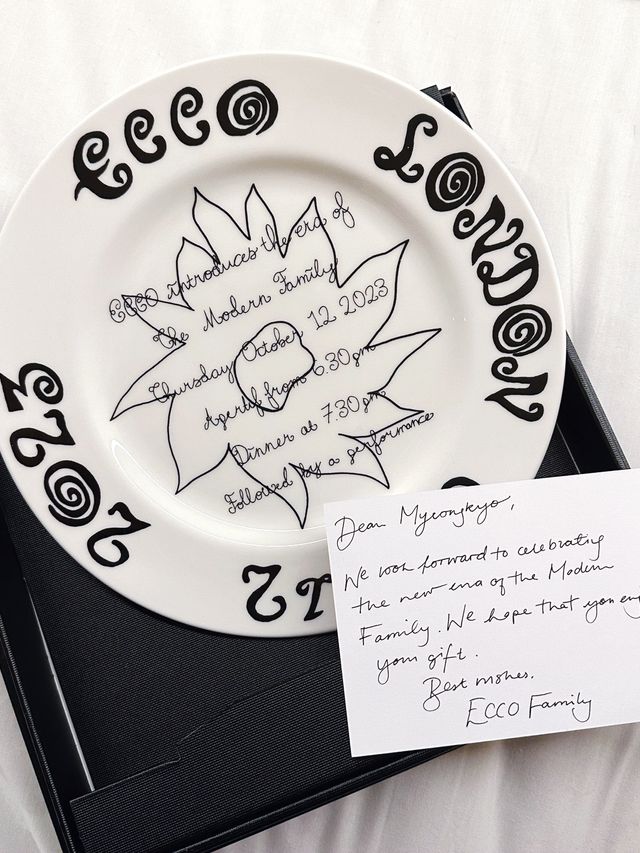 ECCO
LONDON
2023
ECCO introduces the era of
the Modern Family
Thursday October 12 2023
Aperitif from 6.30pm
Dinner at 7.30pm
Followed by a performance
Dear Myeongkyo,
We look forward to celebrating
the new era of the Modern
Family. We hope that you
your gift.
Best wishes,
ECCO Family